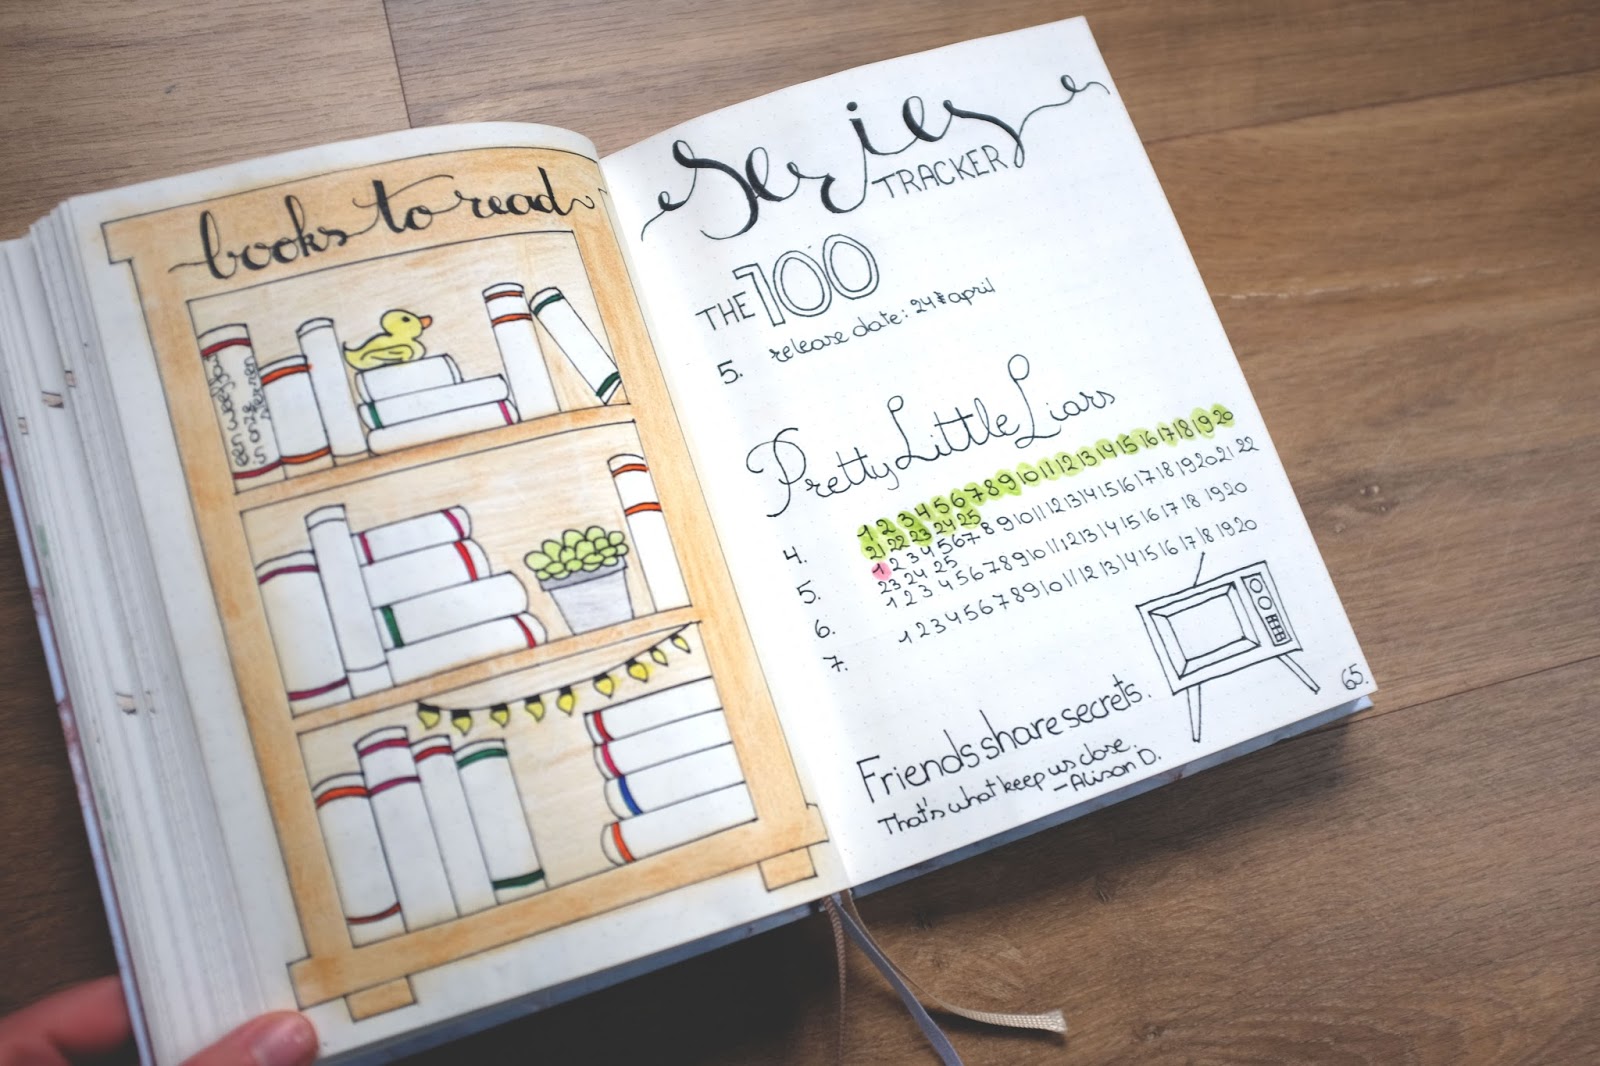 books to read
een wolf/za
is ons
Series
TRACKER
THE 100
5. release date: 24 april
Pretty Little Liars
4. 1 2 3 4 5 6 7 8 9 10 11 12 13 14 15 16 17 18 19 20
21 22 23 24 25
5. 1 2 3 4 5 6 7 8 9 10 11 12 13 14 15 16 17 18 19 20 21 22
23 24 25
6. 1 2 3 4 5 6 7 8 9 10 11 12 13 14 15 16 17 18 19 20
7. 1 2 3 4 5 6 7 8 9 10 11 12 13 14 15 16 17 18 19 20
Friends share secrets.
That's what keep us close
- Alison D.
65.